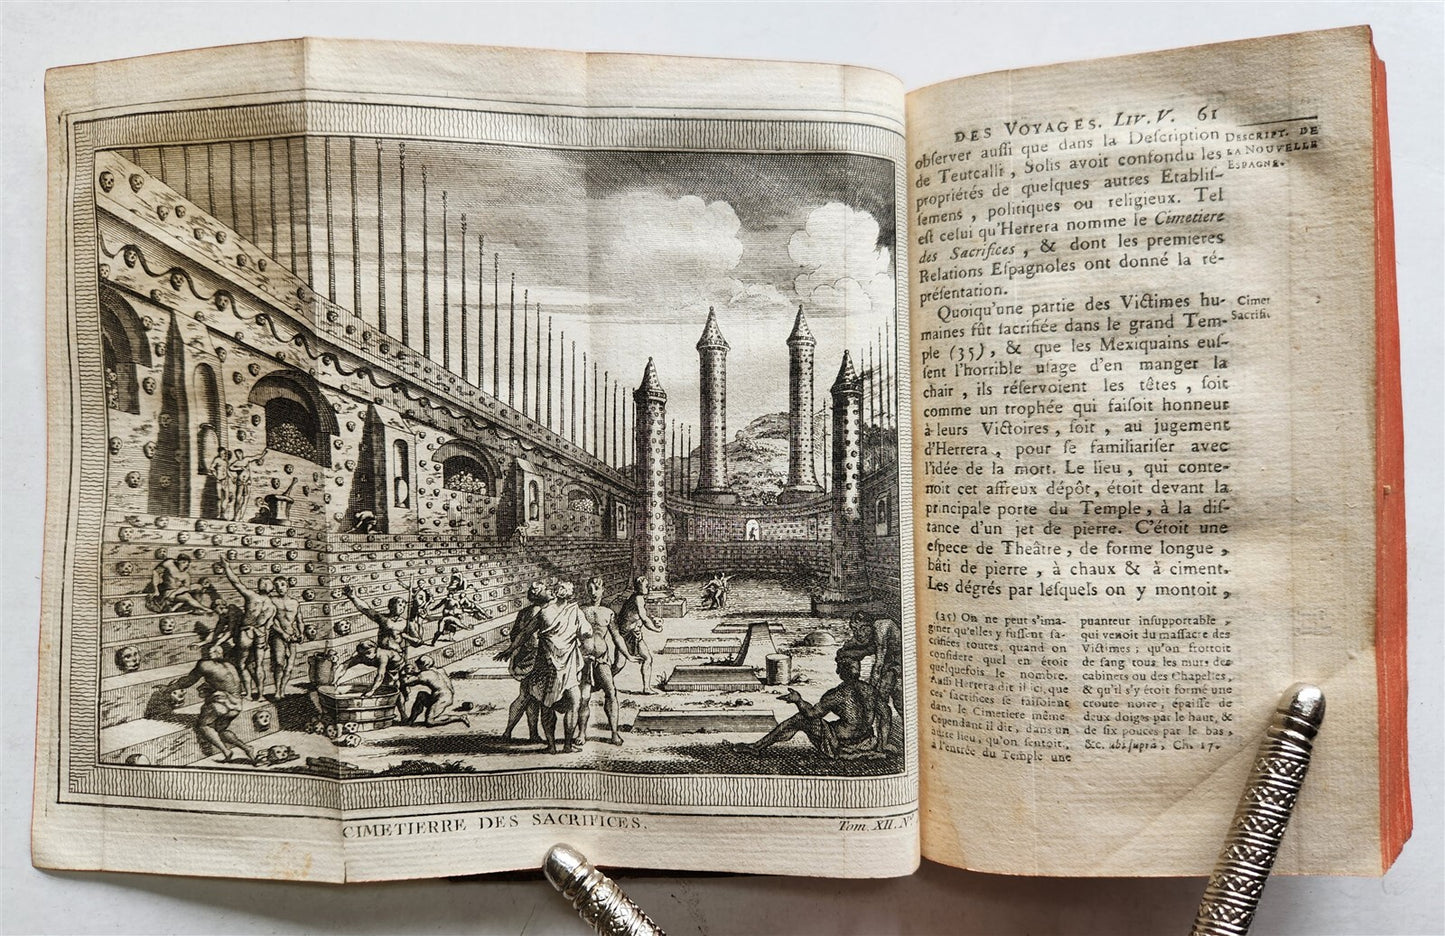 CIMETIERRE DES SACRIFICES.
Tom. XII. N.º
DES VOYAGES. LIV. V. 61
obſerver auſſi que dans la Deſcription
de Teutcalli, Solis avoit confondu les
propriétés de quelques autres Etabliſ-
ſemens, politiques ou religieux. Tel
eſt celui qu'Herrera nomme le Cimetiere
des Sacrifices, & dont les premieres
Relations Eſpagnoles ont donné la ré-
préſentation.
Quoiqu'une partie des Victimes hu-
maines fût ſacrifiée dans le grand Tem-
ple (35), & que les Mexiquains euſ-
ſent l'horrible uſage d'en manger la
chair, ils réſervoient les têtes, ſoit
comme un trophée qui faiſoit honneur
à leurs Victoires, ſoit, au jugement
d'Herrera, pour ſe familiariſer avec
l'idée de la mort. Le lieu, qui conte-
noit cet affreux dépôt, étoit devant la
principale porte du Temple, à la diſ-
tance d'un jet de pierre. C'étoit une
eſpece de Theâtre, de forme longue,
bâti de pierre, à chaux & à ciment.
Les dégrés par leſquels on y montoit,
DESCRIPT. DE
LA NOUVELLE
ESPAGNE.
Cimet
Sacrifi
(35) On ne peut s'ima-
giner qu'elles y fuſſent ſa-
crifiées toutes, quand on
conſidere quel en étoit
quelquefois le nombre.
Auſſi Herrera dit il ici, que
ces ſacrifices ſe faiſoient
dans le Cimetiere même
Cependant il dit, dans un
autre lieu, qu'on ſentoit,
à l'entrée du Temple une
puanteur inſupportable,
qui venoit du maſſacre des
Victimes; qu'on frottoit
de ſang tous les murs des
cabinets ou des Chapelles,
& qu'il s'y étoit formé une
croute noire, épaiſſe de
deux doigts par le haut, &
de ſix pouces par le bas,
&c. ubi ſuprà, Ch. 17.